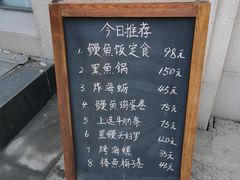 今日推荐
1. 鳗鱼饭定食 98元
2. 黑鱼锅 150元
3. 炸海蛎 45元
4. 鳗鱼鸡蛋卷 75元
5. 上选牛肋条 75元
6. 星鳗天妇罗 120元
7. 烤海螺 35元
8. 梅子卷 45元